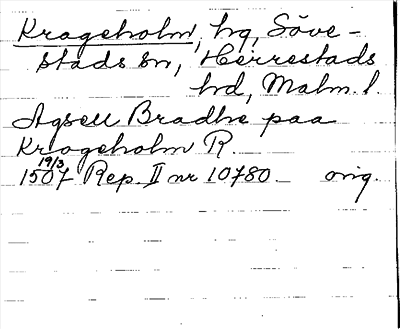 Krageholm, hg, Söve-
stads sn, Herrestads
hd, Malm. l.
Agsell Bradhe paa
Krogeholm R.
19/3
1507 Rep. II nr 10780 - orig.